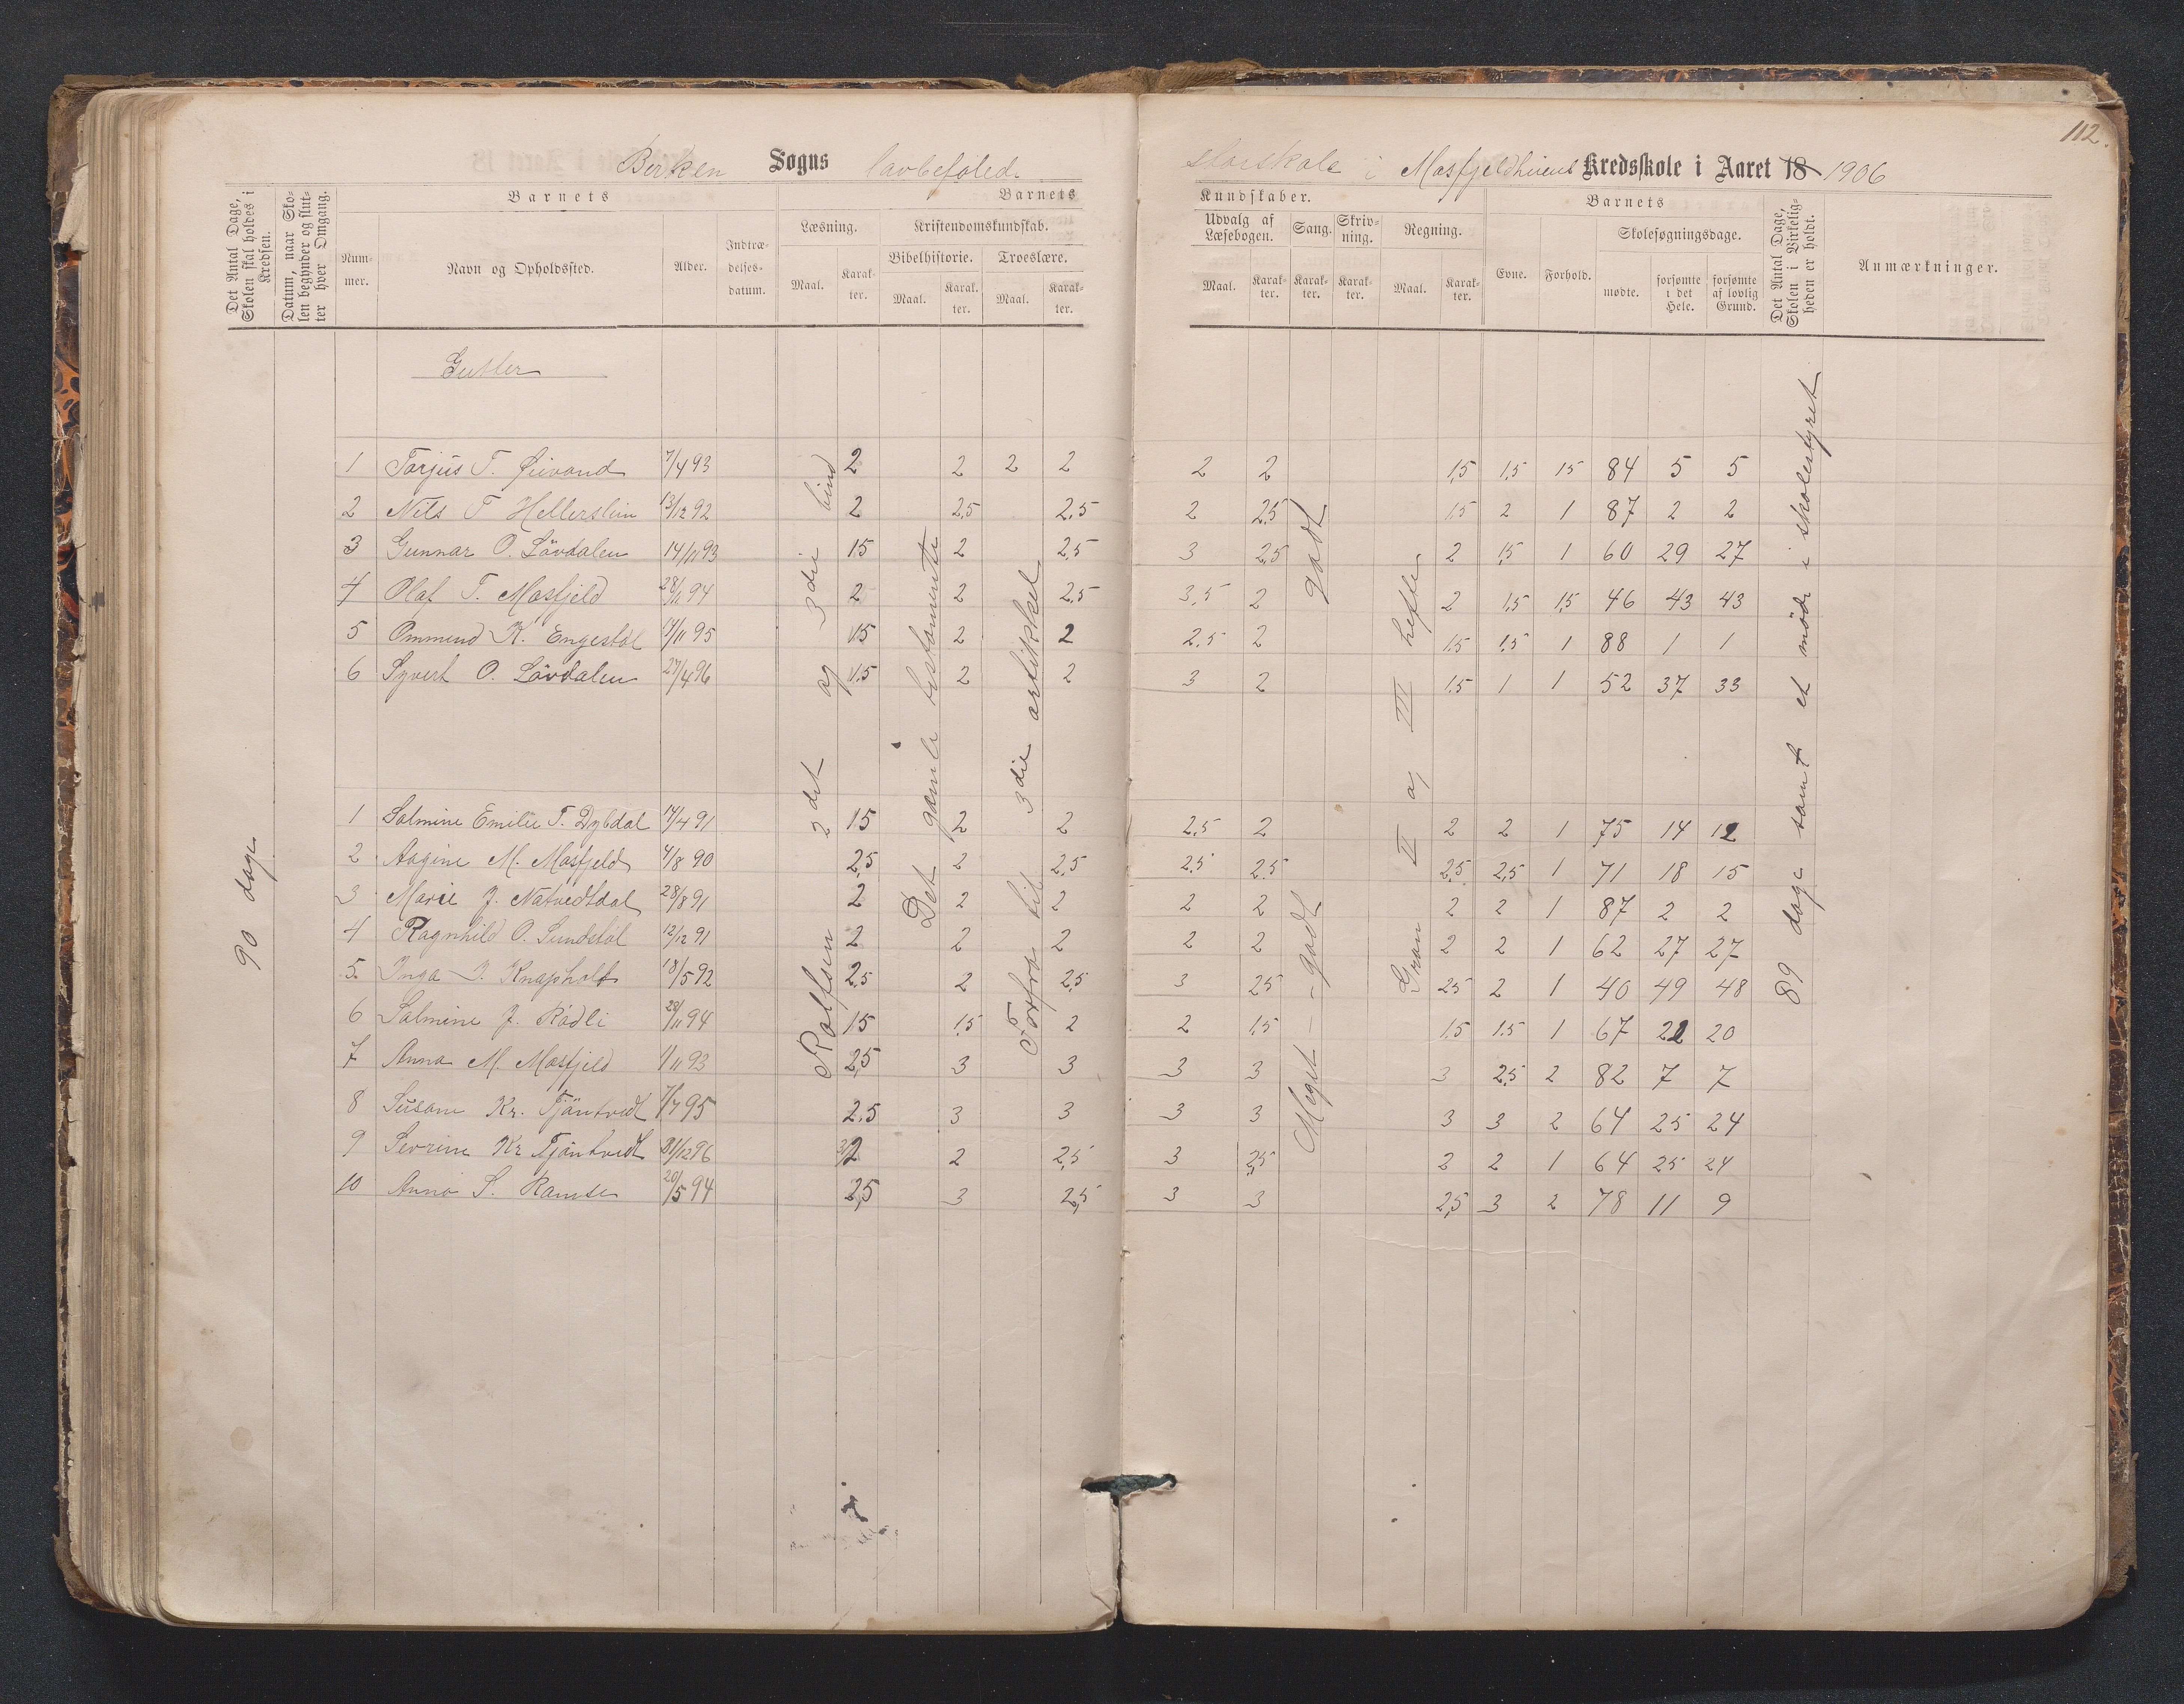 112.
Birken Sogns lavbefoled. storskole i Mosfjeldhiiens Kredsskole i Aaret 18 1906
Det Antal Dage, Skolen skal holdes i Kredsen.
Datum, naar Skolen begynder og slutter hver Omgang.
Barnets
Nummer.
Navn og Opholdssted.
Alder.
Indtrædelsesdatum.
Barnets
Læsning.
Maal.
Karakter.
Kristendomskundskab.
Bibelhistorie.
Maal.
Karakter.
Troeslære.
Maal.
Karakter.
Kundskaber.
Udvalg af Læsebogen.
Maal.
Karakter.
Sang.
Karakter.
Skrivning.
Karakter.
Regning.
Maal.
Karakter.
Barnets
Evne.
Forhold.
Skolesøgningsdage.
mødte.
forsømte i det Hele.
forsømte af lovlig Grund.
Det Antal Dage, Skolen i Virkeligheden er holdt.
Anmærkninger.
Gutter
1 Torjus T. Øivand 7/4 93 2 2 2 2 2 2 1,5 1,5 1,5 84 5 5
2 Nils T Hellerslien 13/12 92 2 2,5 2,5 2 2,5 1,5 2 1 87 2 2
3 Gunnar O. Lövdalen 14/11 93 1,5 2 2,5 3 2,5 2 1,5 1 60 29 27
4 Olaf T. Mosfjeld 28/11 94 2 2 2,5 3,5 2 2 1,5 1,5 46 43 43
5 Ommund K. Engestöl 17/11 95 1,5 2 2 2,5 2 1,5 1,5 1 88 1 1
6 Syvert O. Lövdalen 27/4 96 1,5 2 2 3 2 1,5 1 1 52 37 33
1 Salmine Emilie T. Dybdal 17/4 91 1,5 2 2 2,5 2 2 2 1 75 14 12
2 Aagine M. Mosfjeld 4/8 90 2,5 2 2,5 2,5 2,5 2,5 2,5 1 71 18 15
3 Marie J. Natvedtdal 28/8 91 2 2 2 2 2 2 2 1 87 2 2
4 Ragnhild O. Sundstöl 12/12 91 2 2 2 2 2 2 2 1 62 27 27
5 Inga J. Knapholt 18/5 92 2,5 2 2,5 3 2,5 2,5 2 1 40 49 48
6 Salmine J. Rödli 28/11 94 1,5 1,5 2 2 1,5 1,5 1,5 1 67 22 20
7 Anna M. Mosfjeld 1/11 93 2,5 3 3 3 3 3 2,5 2 82 7 7
8 Susane Kr. Tjöntvedt 7/7 95 2,5 3 3 3 3 3 3 2 64 25 24
9 Sevrine Kr Tjöntvedt 31/12 96 2 2 2,5 3 2,5 2 2 1 64 25 24
10 Anna S. Ramse 20/5 94 2,5 3 2,5 3 3 2,5 3 2 78 11 9
90 dage
Rolfsen 2det og 3die bind
Det gamle testamente
Forfra til 3die artikkel
Meget – godt – godt
Gran II og III hefte
89 dage samt et möde i skolestyret